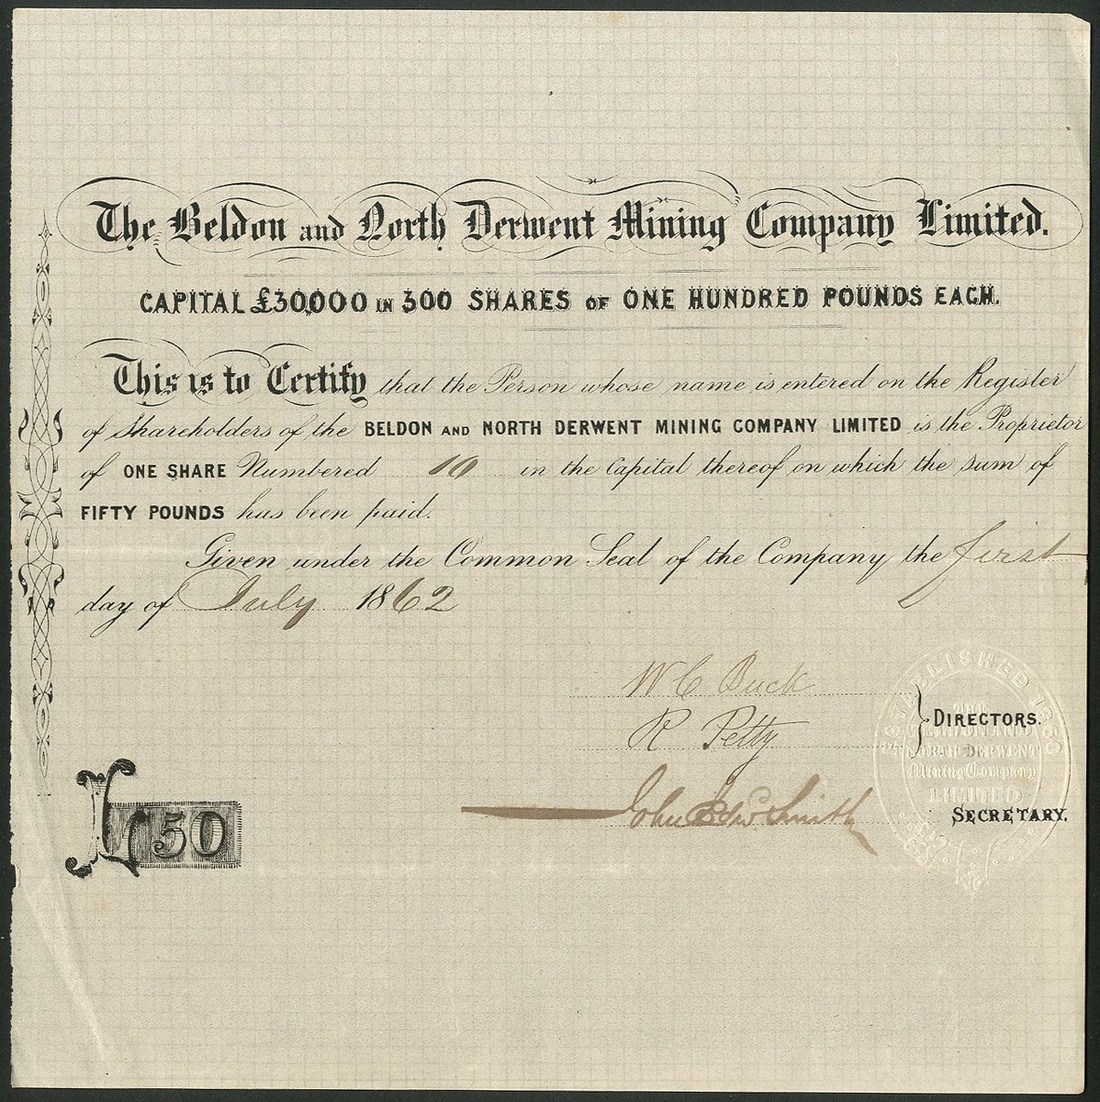 The Beldon and North Derwent Mining Company Limited.
CAPITAL £30,000 IN 300 SHARES OF ONE HUNDRED POUNDS EACH.
This is to Certify that the Person whose name is entered on the Register
of Shareholders of the BELDON AND NORTH DERWENT MINING COMPANY LIMITED is the Proprietor
of ONE SHARE Numbered 10 in the Capital thereof on which the sum of
FIFTY POUNDS has been paid.
Given under the Common Seal of the Company the first
day of July 1862
W C Buck
R Petty
DIRECTORS.
John Edwd Smith
SECRETARY.
£50
ESTABLISHED 1860
THE
BELDON AND
NORTH DERWENT
Mining Company
LIMITED